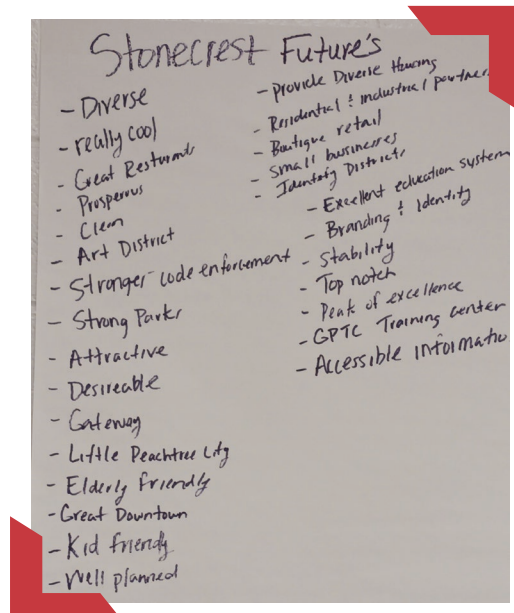 Stonecrest Future's
- Diverse
- really cool
- Great Resturants
- Prosperous
- Clean
- Art District
- Stronger code enforcement
- Strong Parks
- Attractive
- Desireable
- Gateway
- Little Peachtree City
- Elderly Friendly
- Great Downtown
- Kid friendly
- Well planned
- provide Diverse Housing
- Residential & industrial partner
- Boutique retail
- Small businesses
- Identify Districts
- Excellent education system
- Branding & Identity
- Stability
- Top notch
- Peak of excellence
- GPTC Training center
- Accessible informatio